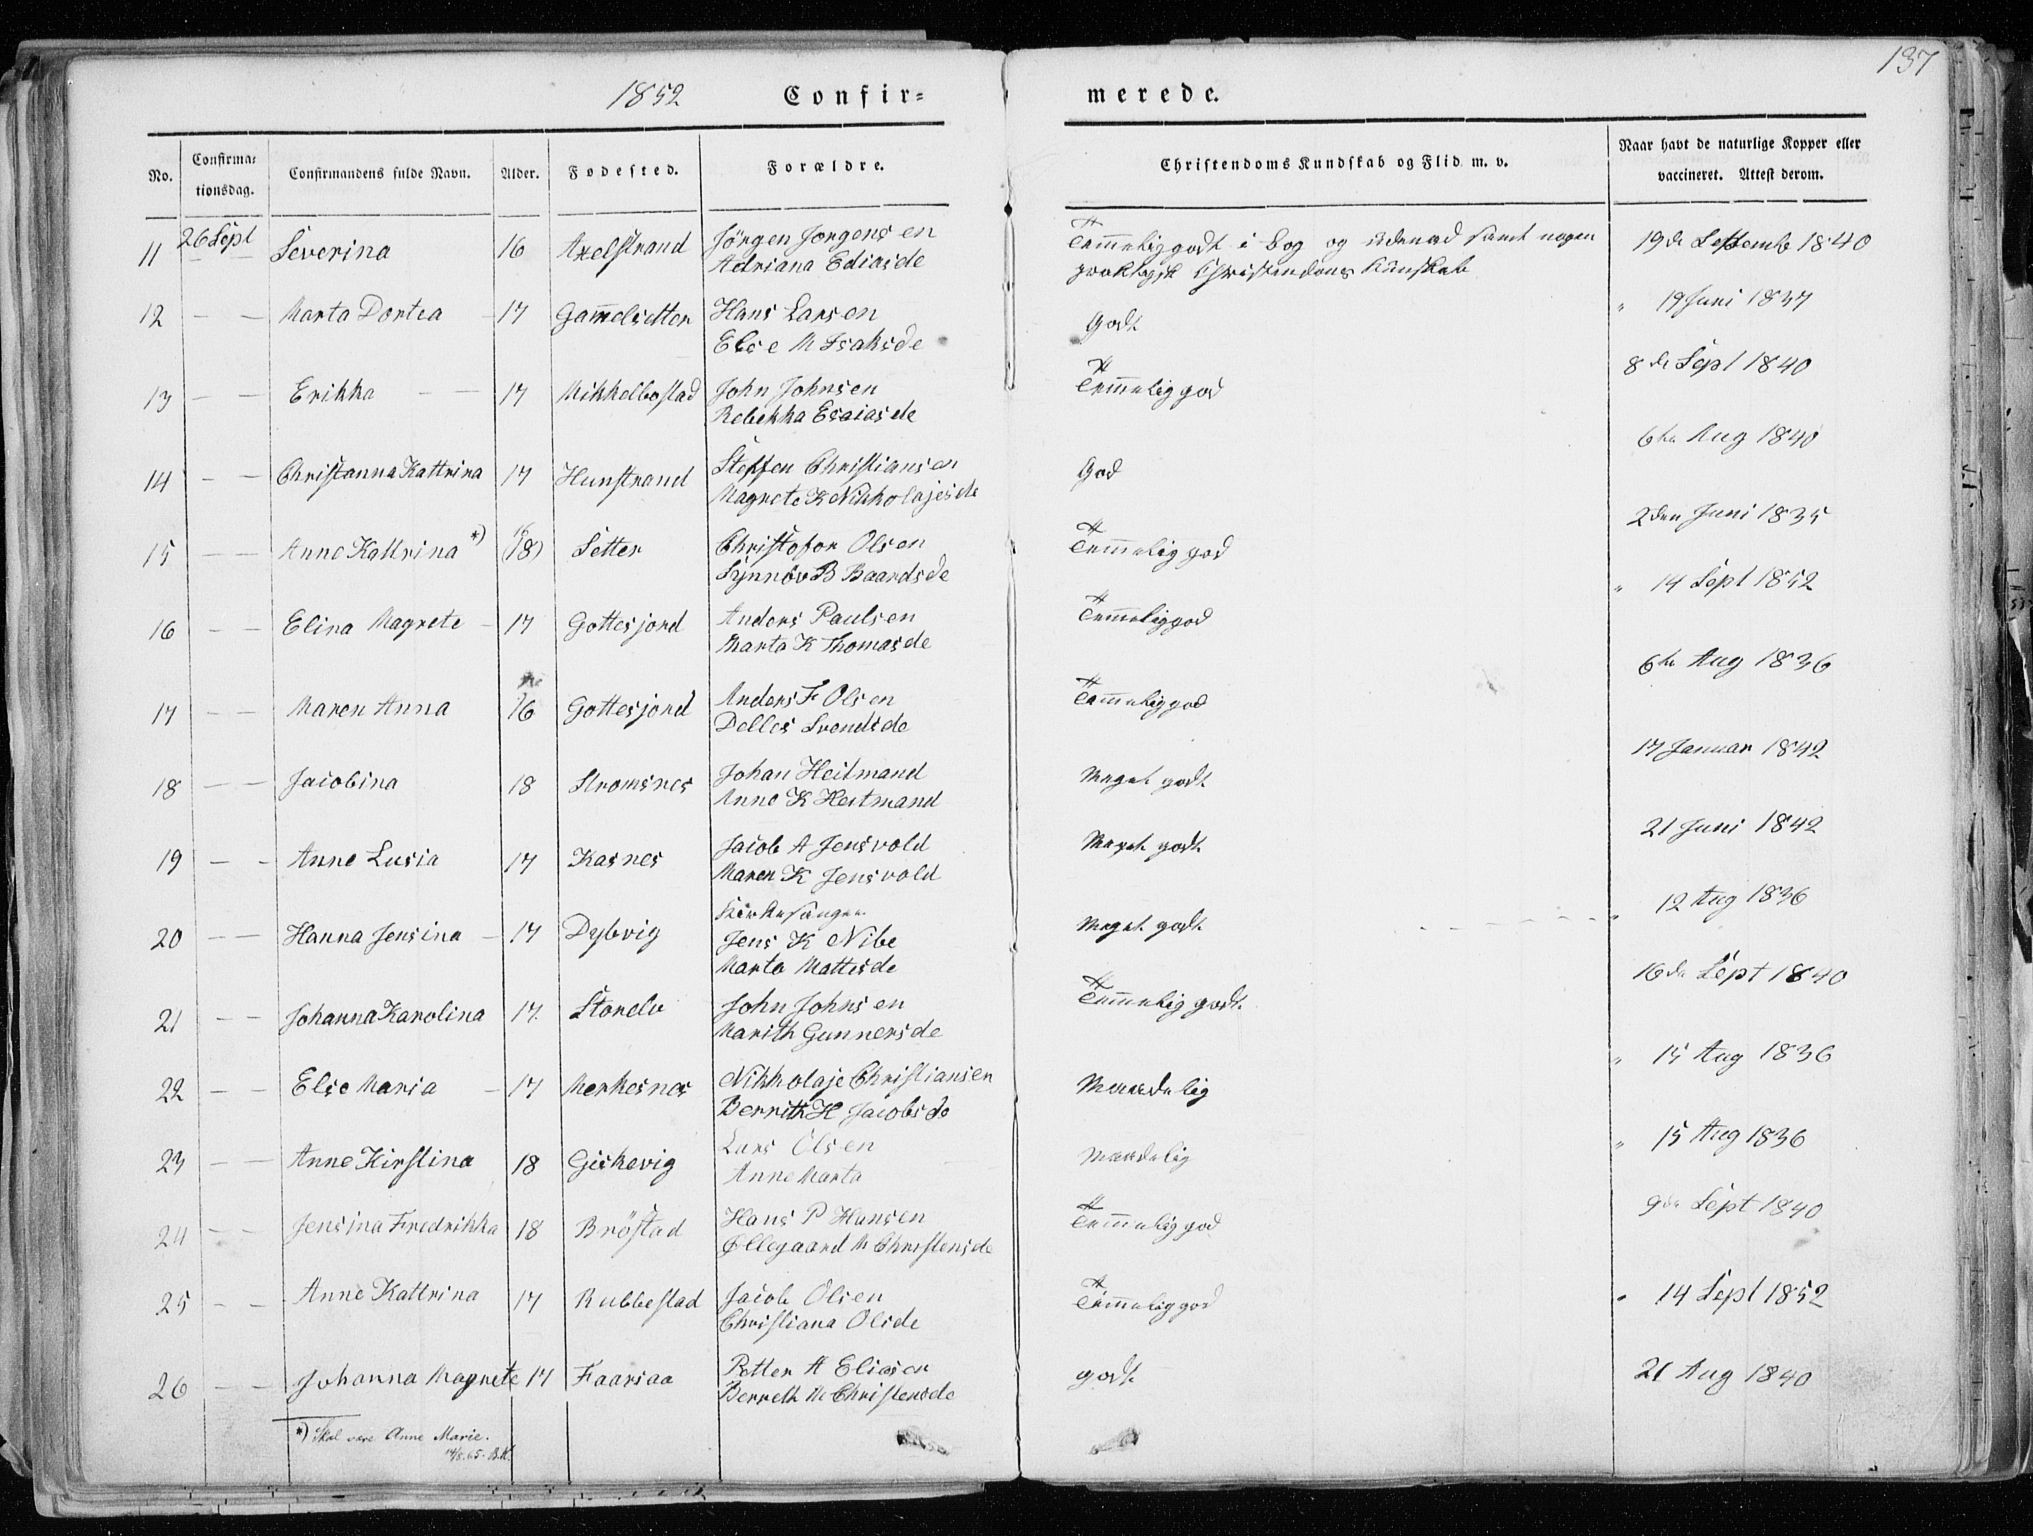 137
1852 Confir= merede.
No. Confirma= tionsdag. Confirmandens fulde Navn. Alder. Fødested. Forældre. Christendoms Kundskab og Flid m. v. Naar havt de naturlige Kopper eller vaccineret. Attest derom.
11 26 Sept Severina 16 Axelstrand Jörgen Jorgensen Temmelig godt i Bog og udenad samt nogen 19de Septembr 1840
Adriana Ediasde praktisk Christendoms Kunskab
12 — — Marta Dortea 17 Gammelsetter Hans Larsen Godt " 19 Juni 1837
Else M Isaksde
13 — — Erikka 17 Mikkelbostad John Johnsen Temmelig god 8de Sept 1840
Rebekka Esaiasde
14 — — Christanna Kattrina 17 Hunstrand Steffen Christiansen God 6te Aug 1840
Magrete K Nikkolajesde
15 — — Anne Kattrina *) 18) Setter Christofor Olsen Temmelig god 2den Juni 1835
Synnöv B Baardsde
16 — — Elina Magrete 17 Gottesjord Anders Paulsen Temmelig god " 14 Sept 1852
Marta K Thomasde
17 — — Maren Anna 16 Gottesjord Anders F Olsen Temmelig god 6te Aug 1836
Delles Svendsde
18 — — Jacobina 18 Stromsnes Johan Heitmand Meget godt 17 Januar 1842
Anne K Heitmand
19 — — Anne Lusia 17 Kasnes Jacob A Jensvold Meget godt 21 Juni 1842
Maren K Jensvold
20 — — Hanna Jensina 17 Dybvig Kirkesanger Meget godt " 12 Aug 1836
Jens K Nibe
Marta Mattisde
21 — — Johanna Karolina 17. Storelv John Johnsen Temmelig godt 16de Sept 1840
Marith Gunnersde
22 — — Else Maria 17 Merkesnes Nikkolaje Christiansen Maadelig " 15 Aug 1836
Berrith H Jacobsde
23 — — Anne Kirstina 18 Giskevig Lars Olsen Maadelig " 15 Aug 1836
Anne Marta
24 — — Jensina Fredrikka 18 Bröstad Hans P Hansen Temmelig god 9de Sept 1840
Øllegaard M Christensde
25 — — Anne Kattrina 17 Rubbestad Jacob Olsen Temmelig god " 14 Sept 1852
Christiana Olsde
26 — — Johanna Magrete 17 Faarsaa Petter A Eliasen godt 21 Aug 1840
Berreth M Christensde
*) Skal være Anne Marie.
14/8.65. B.K.